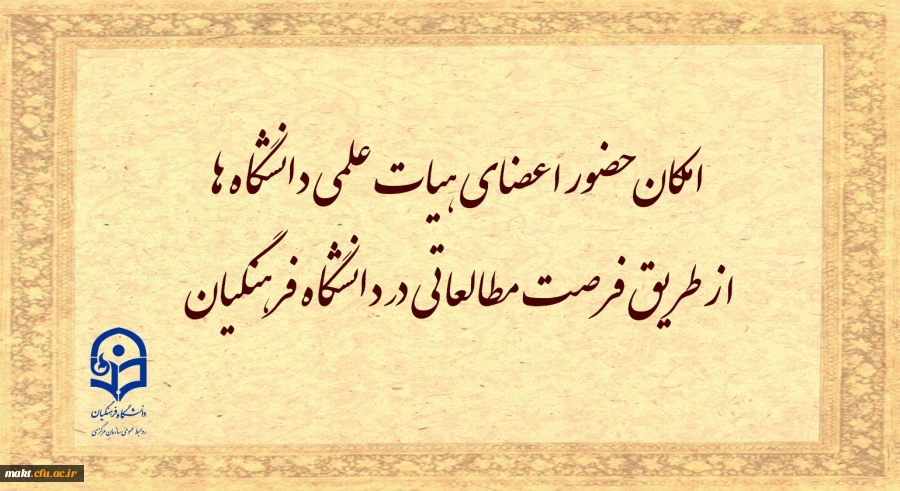 امکان حضور اعضای هیات علمی دانشگاه ها
از طریق فرصت مطالعاتی در دانشگاه فرهنگیان
دانشگاه فرهنگیان
روابط عمومی سازمان مرکزی
makt.cfu.ac.ir